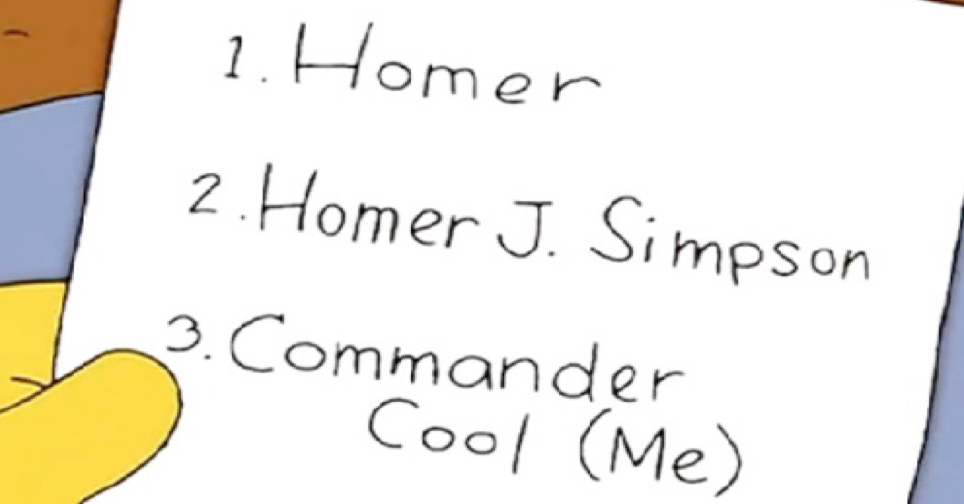 1. Homer
2. Homer J. Simpson
3. Commander
Cool (Me)